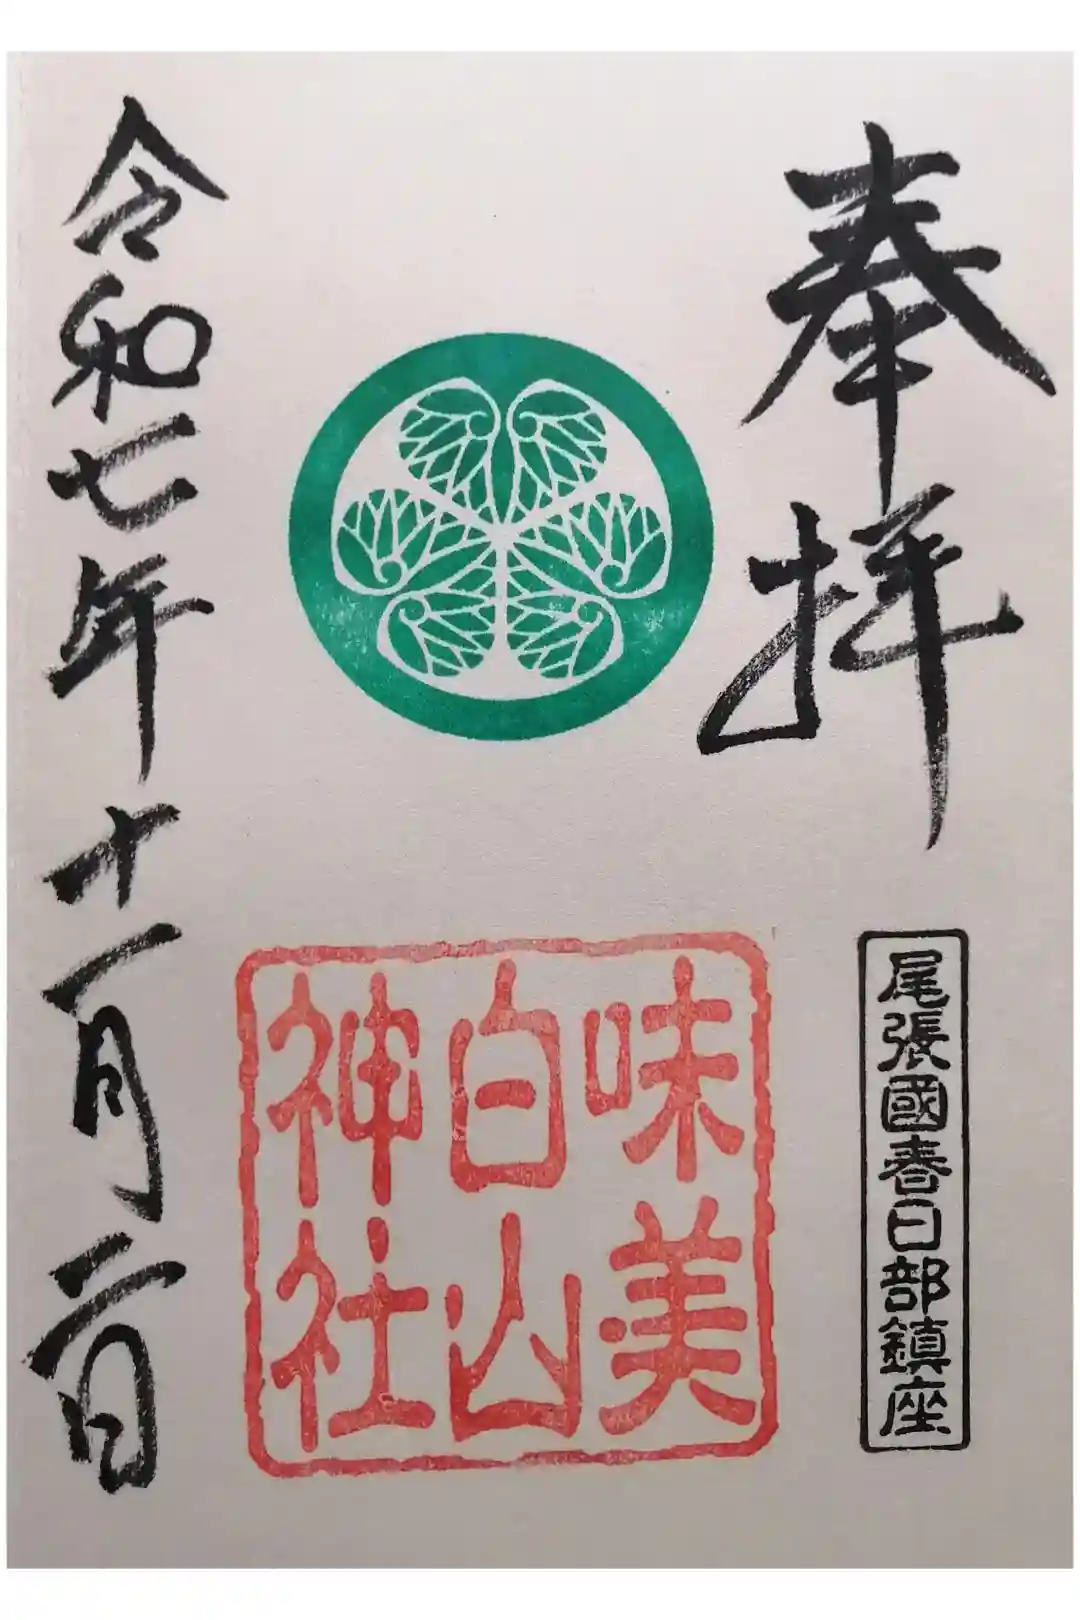 奉拝
尾張國春日部鎮座
味美
白山
神社
令和七年十一月二日